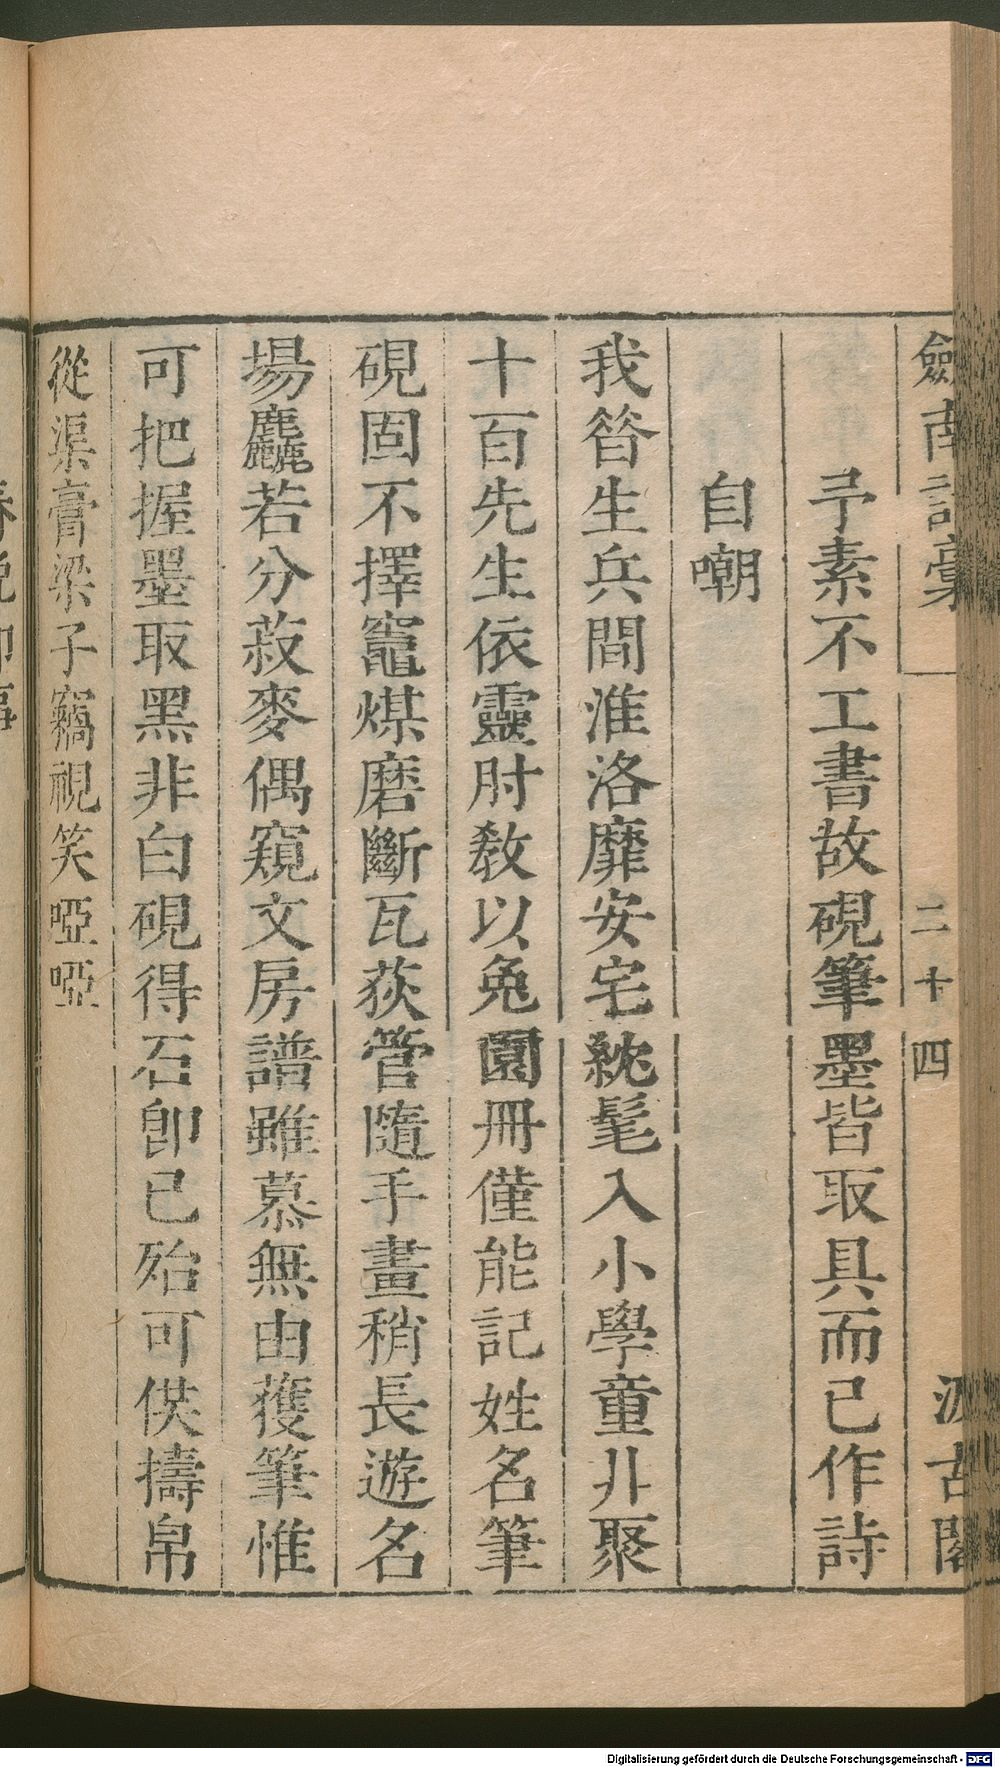 劒南詩稾
二十四
汲古閣
予素不工書故硯筆墨皆取具而已作詩
自嘲
我昝生兵間淮洛靡安宅髧髦入小學童丱聚
十百先生依靈肘敎以兔園冊僅能記姓名筆
硯固不擇竈煤磨斷瓦荻管隨手畫稍長遊名
場麤若分菽麥偶窺文房譜雖慕無由獲筆惟
可把握墨取黑非白硯得石卽已殆可供擣帛
從渠膏粱子竊視笑啞啞
Digitalisierung gefördert durch die Deutsche Forschungsgemeinschaft - DFG